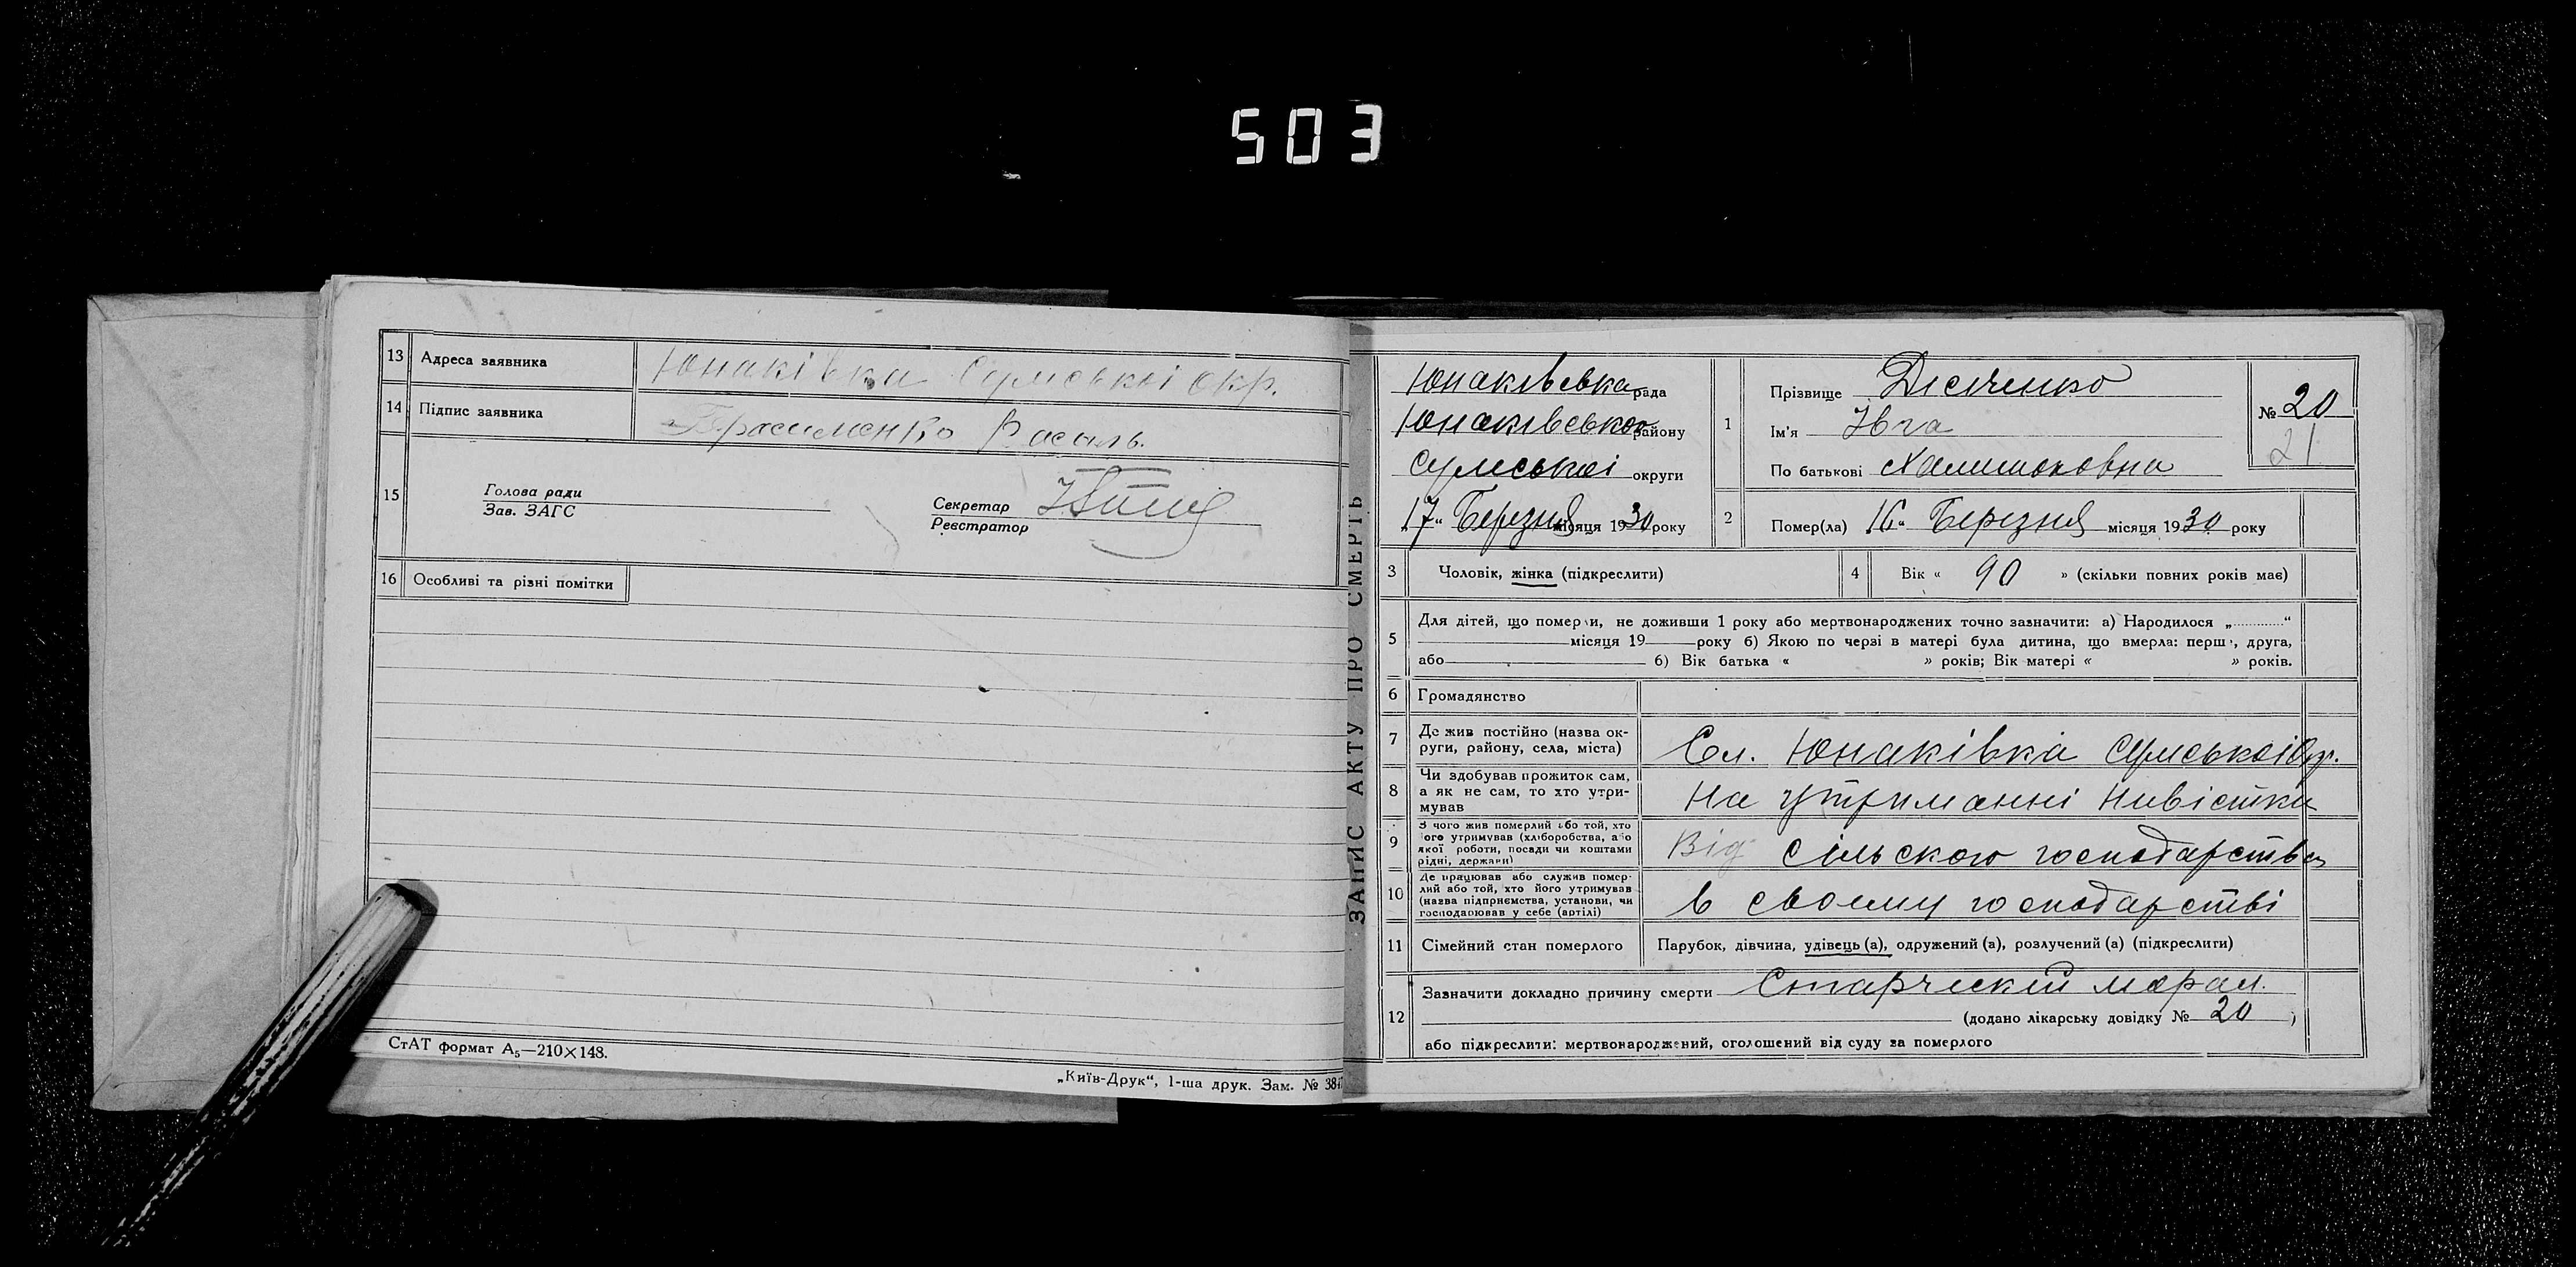 503
13 Адреса заявника Юнаківка Сумської окр.
14 Підпис заявника Герасименко Василь.
15 Голова ради
Зав. ЗАГС
Секретар
Реєстратор
16 Особливі та різні помітки
СтАТ формат А₅—210×148.
„Київ-Друк“, 1-ша друк. Зам. № 384
ЗАПИС АКТУ ПРО СМЕРТЬ
Юнаківська рада
Юнаківського району
Сумської округи
17 „ Березня місяця 1930 року
1 Прізвище
Ім'я Ївга
По батькові
№ 20
21
2 Помер(ла) 16 „ Березня місяця 1930 року
3 Чоловік, жінка (підкреслити)
4 Вік « 90 » (скільки повних років має)
5 Для дітей, що померли, не доживши 1 року або мертвонароджених точно зазначити: а) Народилося „.............“
місяця 19 року б) Якою по черзі в матері була дитина, що вмерла: перша, друга,
або б) Вік батька « » років; Вік матері « » років.
6 Громадянство
7 Де жив постійно (назва округи, району, села, міста) Сл. Юнаківка Сумської Окр.
8 Чи здобував прожиток сам,
а як не сам, то хто утримував
На утриманні нивістки
9 З чого жив померлий або той, хто
його утримував (хліборобства, або
якої роботи, посади чи коштами
рідні, держави)
Від сільского господарства
10 Де працював або служив померлий або той, хто його утримував
(назва підприємства, установи, чи
господарював у себе (артілі)
в своєму господарстві
11 Сімейний стан померлого Парубок, дівчина, удівець (а), одружений (а), розлучений (а) (підкреслити)
12 Зазначити докладно причину смерти Старческий
(додано лікарську довідку № 20 )
або підкреслити: мертвонароджений, оголошений від суду за померлого